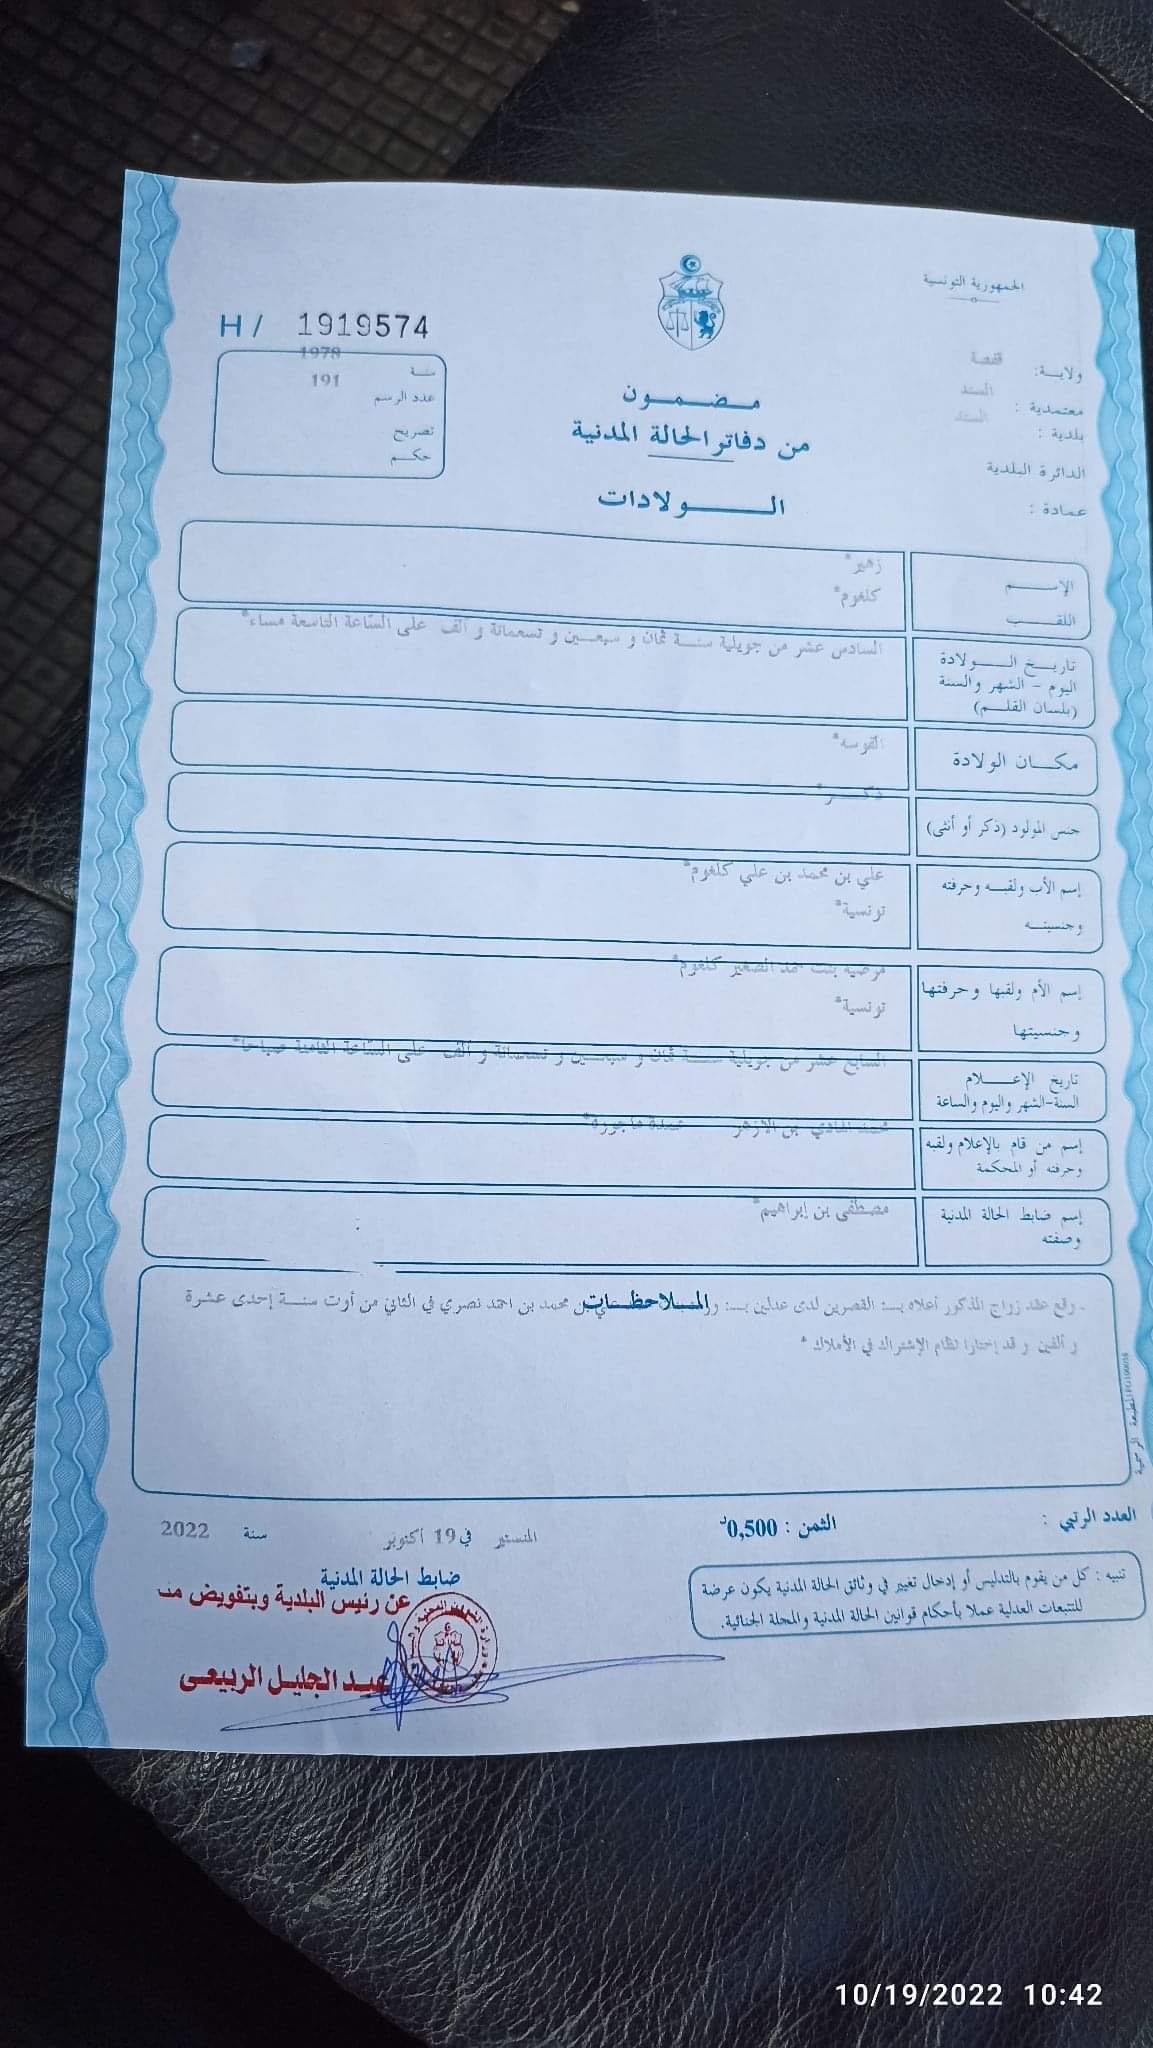 الجمهورية التونسية
ولاية: قفصة
معتمدية : السند
بلدية : السند
الدائرة البلدية
عمادة :
H/ 1919574
سنة 1978
عدد الرسم 191
تصريح
حكم
مضمون
من دفاتر الحالة المدنية
الولادات
الإسم زهير*
اللقب كلغوم*
تاريخ الولادة السادس عشر من جويلية سنة ثمان و سبعين و تسعمائة و ألف على السّاعة التاسعة مساء*
اليوم - الشهر والسنة
(بلسان القلم)
مكان الولادة القوسه*
جنس المولود (ذكر أو أنثى) ذكر*
إسم الأب ولقبه وحرفته علي بن محمد بن علي كلغوم*
وجنسيته تونسية*
إسم الأم ولقبها وحرفتها مرضية بنت محمد الصغير كلغوم*
وجنسيتها تونسية*
تاريخ الإعلام السابع عشر من جويلية سنة ثمان و سبعين و تسعمائة و ألف على السّاعة الثامنة صباحا*
السنة-الشهر واليوم والساعة
إسم من قام بالإعلام ولقبه محمد الهادي بن الأزهر عمدة
وحرفته أو المحكمة
إسم ضابط الحالة المدنية مصطفى بن إبراهيم*
وصفته
الملاحظات
ـ رفع عقد زواج المذكور أعلاه بـ: القصرين لدى عدلين بـ: بن محمد بن احمد نصري في الثاني من أوت سنة إحدى عشرة
و ألفين و قد إختارا نظام الإشتراك في الأملاك *
المطبعة الرسمية
العدد الرتبي :
الثمن : 0,500د
المنستير في 19 أكتوبر سنة 2022
ضابط الحالة المدنية
عن رئيس البلدية وبتفويض منه
عبد الجليل الربيعي
تنبيه : كل من يقوم بالتدليس أو إدخال تغيير في وثائق الحالة المدنية يكون عرضة
للتتبعات العدلية عملا بأحكام قوانين الحالة المدنية والمجلة الجنائية.
10/19/2022 10:42